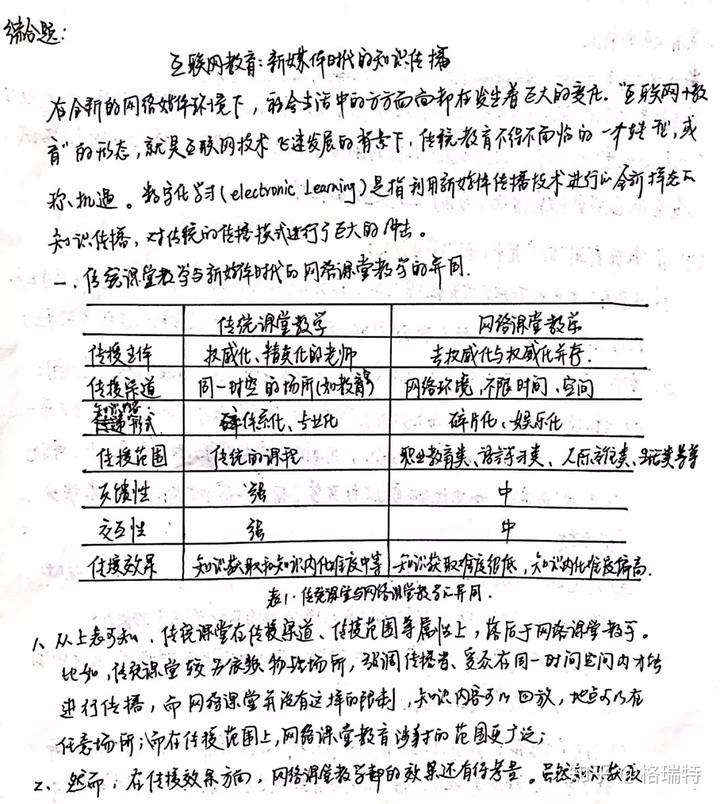 综合题：
互联网教育：新媒体时代的知识传播
在全新的网络媒体环境下，社会生活中的方方面面都在发生着巨大的变化。"互联网+教
育"的形态，就是互联网技术飞速发展的背景下，传统教育不得不面临的一个转型，或
称机遇。数字化学习(electronic Learning)是指利用新媒体传播技术进行的全新样态的
知识传播，对传统的传播模式进行了巨大的冲击。
一、传统课堂教学与新媒体时代的网络课堂教学的异同.
传统课堂教学 网络课堂教学
传播主体 权威化、精英化的老师 去权威化与权威化并存.
传播渠道 同一时空的场所(如教育) 网络环境，不限时间、空间
形式 体系化、专业化 碎片化、娱乐化
传播范围 传统的课程 职业教育类、语言学习类、人际交往类、等等
反馈性 强 中
交互性 强 中
传播效果 知识获取和知识内化难度中等 知识获取难度很低，知识内化难度偏高.
表1.传统课堂与网络课堂教学之异同.
1、从上表可知，传统课堂在传播渠道、传播范围等属性上，落后于网络课堂教学。
比如，传统课堂较为依赖物理场所，强调传播者、受众在同一时间空间内才能
进行传播，而网络课堂并没有这样的限制，知识内容可以回放，地点可以在
任意场所；而在传播范围上，网络课堂教育涉猎的范围更广泛；
2、然而，在传播效果方向，网络课堂教学的效果还有待考量。虽然知识获取
知乎 @格瑞特